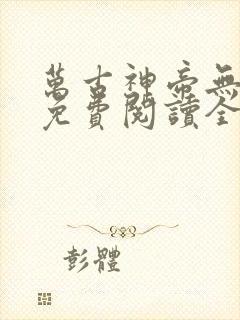 萬古神帝無
免費閱讀全
彭體